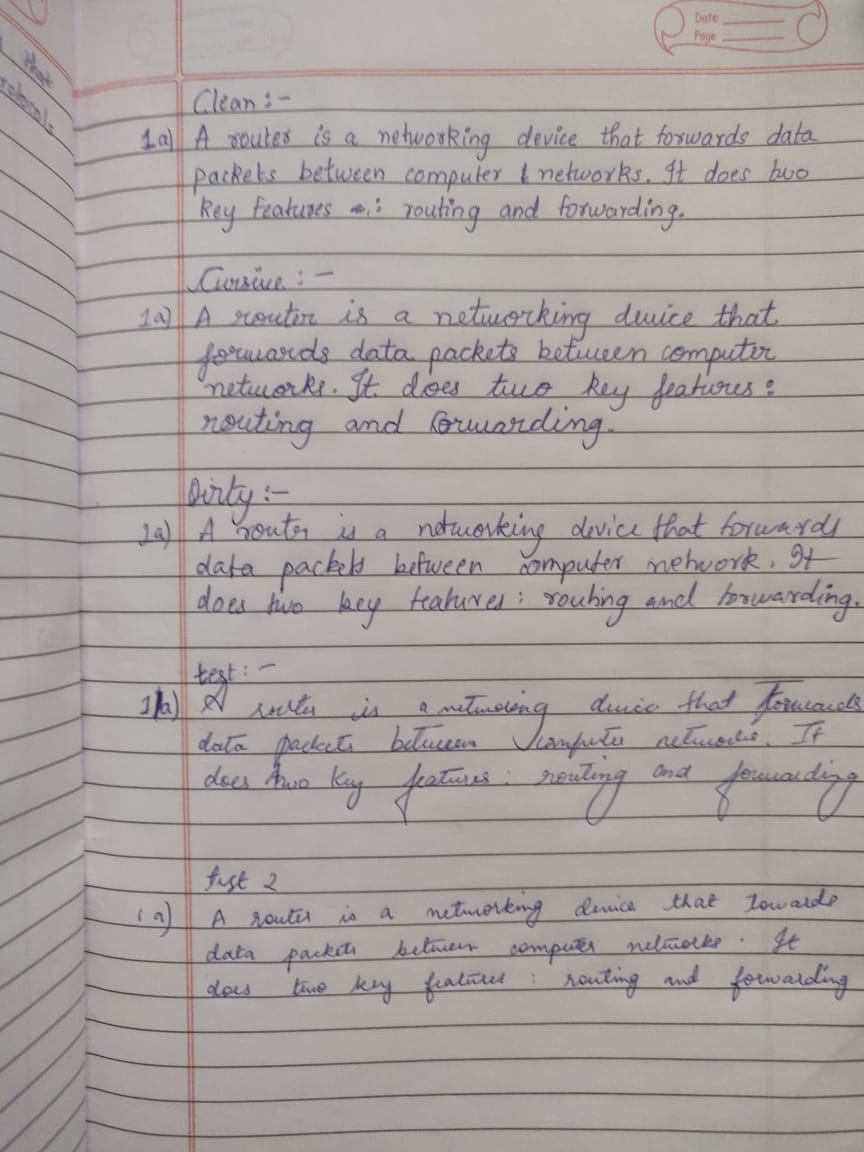 that
rotocols
Date
Page
Clean :-
1a) A router is a networking device that forwards data
packets between computer networks. It does two
key features : routing and forwarding.
Cursive : -
1a) A router is a networking device that
forwards data packets between computer
networks. It does two key features :
routing and forwarding.
Dirty :-
1a) A router is a networking device that forwards
data packets between computer network. It
does two key features : routing and forwarding.
test : -
1a) A router is a networking device that forwards
data packets between computer networks. It
does two key features : routing and forwarding
test 2
1a) A router is a networking device that towards
data packets between computer networks. It
does two key features : routing and forwarding